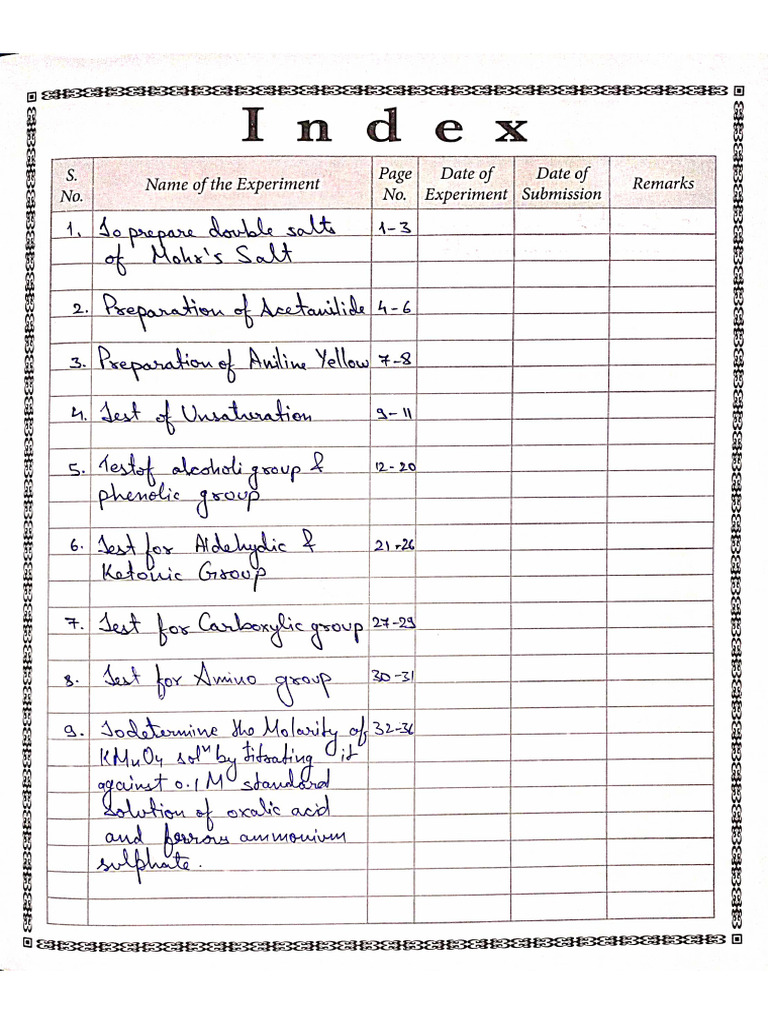 Index
S. No. Name of the Experiment Page No. Date of Experiment Date of Submission Remarks
1. To prepare double salts 1-3
of Mohr's Salt
2. Preparation of Acetanilide 4-6
3. Preparation of Aniline Yellow 7-8
4. Test of Unsaturation 9-11
5. Test of alcoholi group & 12-20
phenolic group
6. Test for Aldehydic & 21-26
Ketonic Group
7. Test for Carboxylic group 27-29
8. Test for Amino group 30-31
9. To determine the Molarity of 32-36
KMnO4 solⁿ by titrating it
against 0.1M standard
solution of oxalic acid
and ferrous ammonium
sulphate.